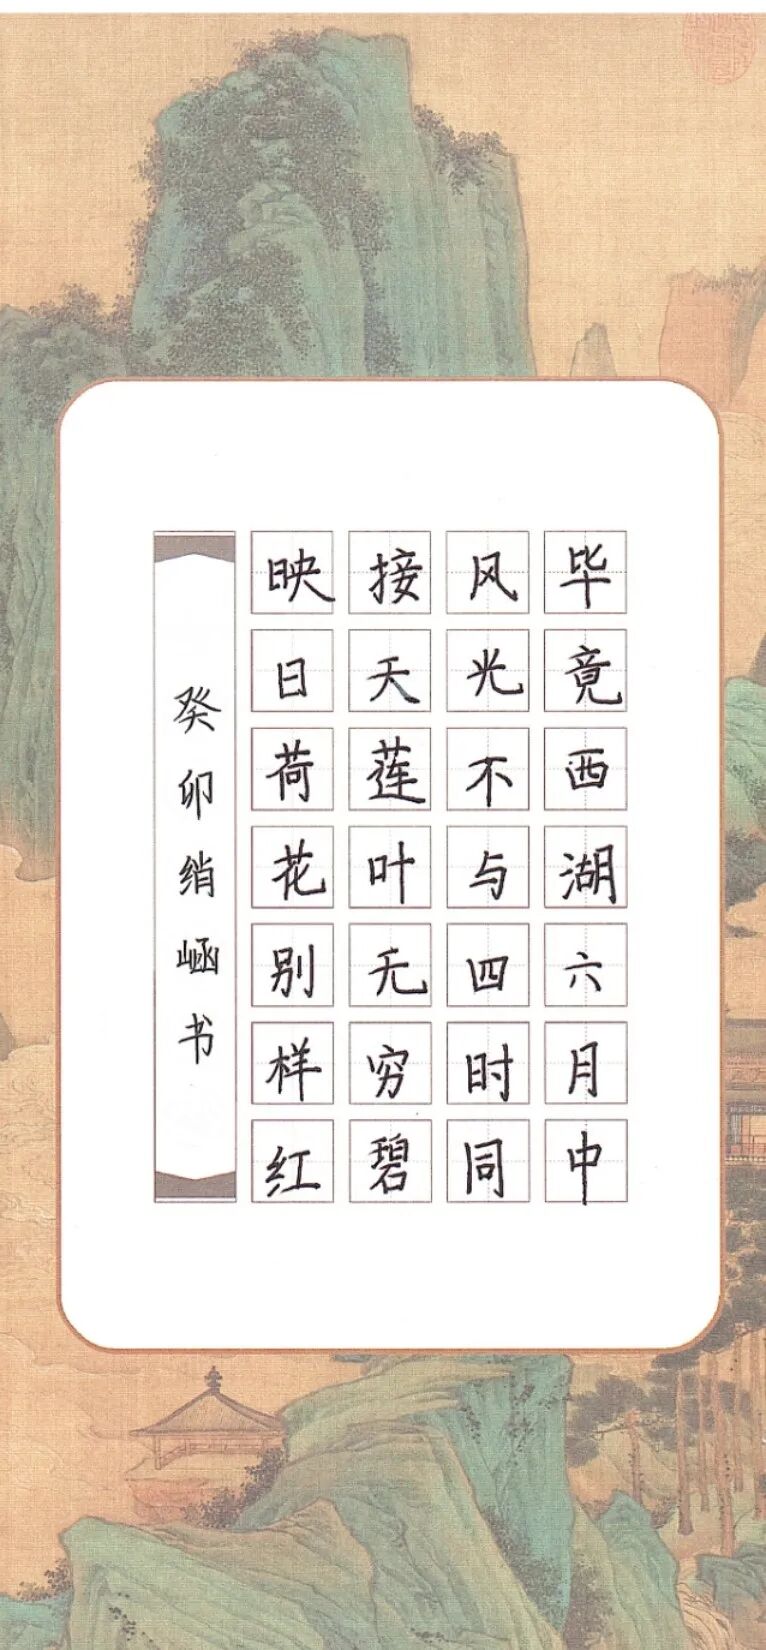 毕竟西湖六月中
风光不与四时同
接天莲叶无穷碧
映日荷花别样红
癸卯绡崡书